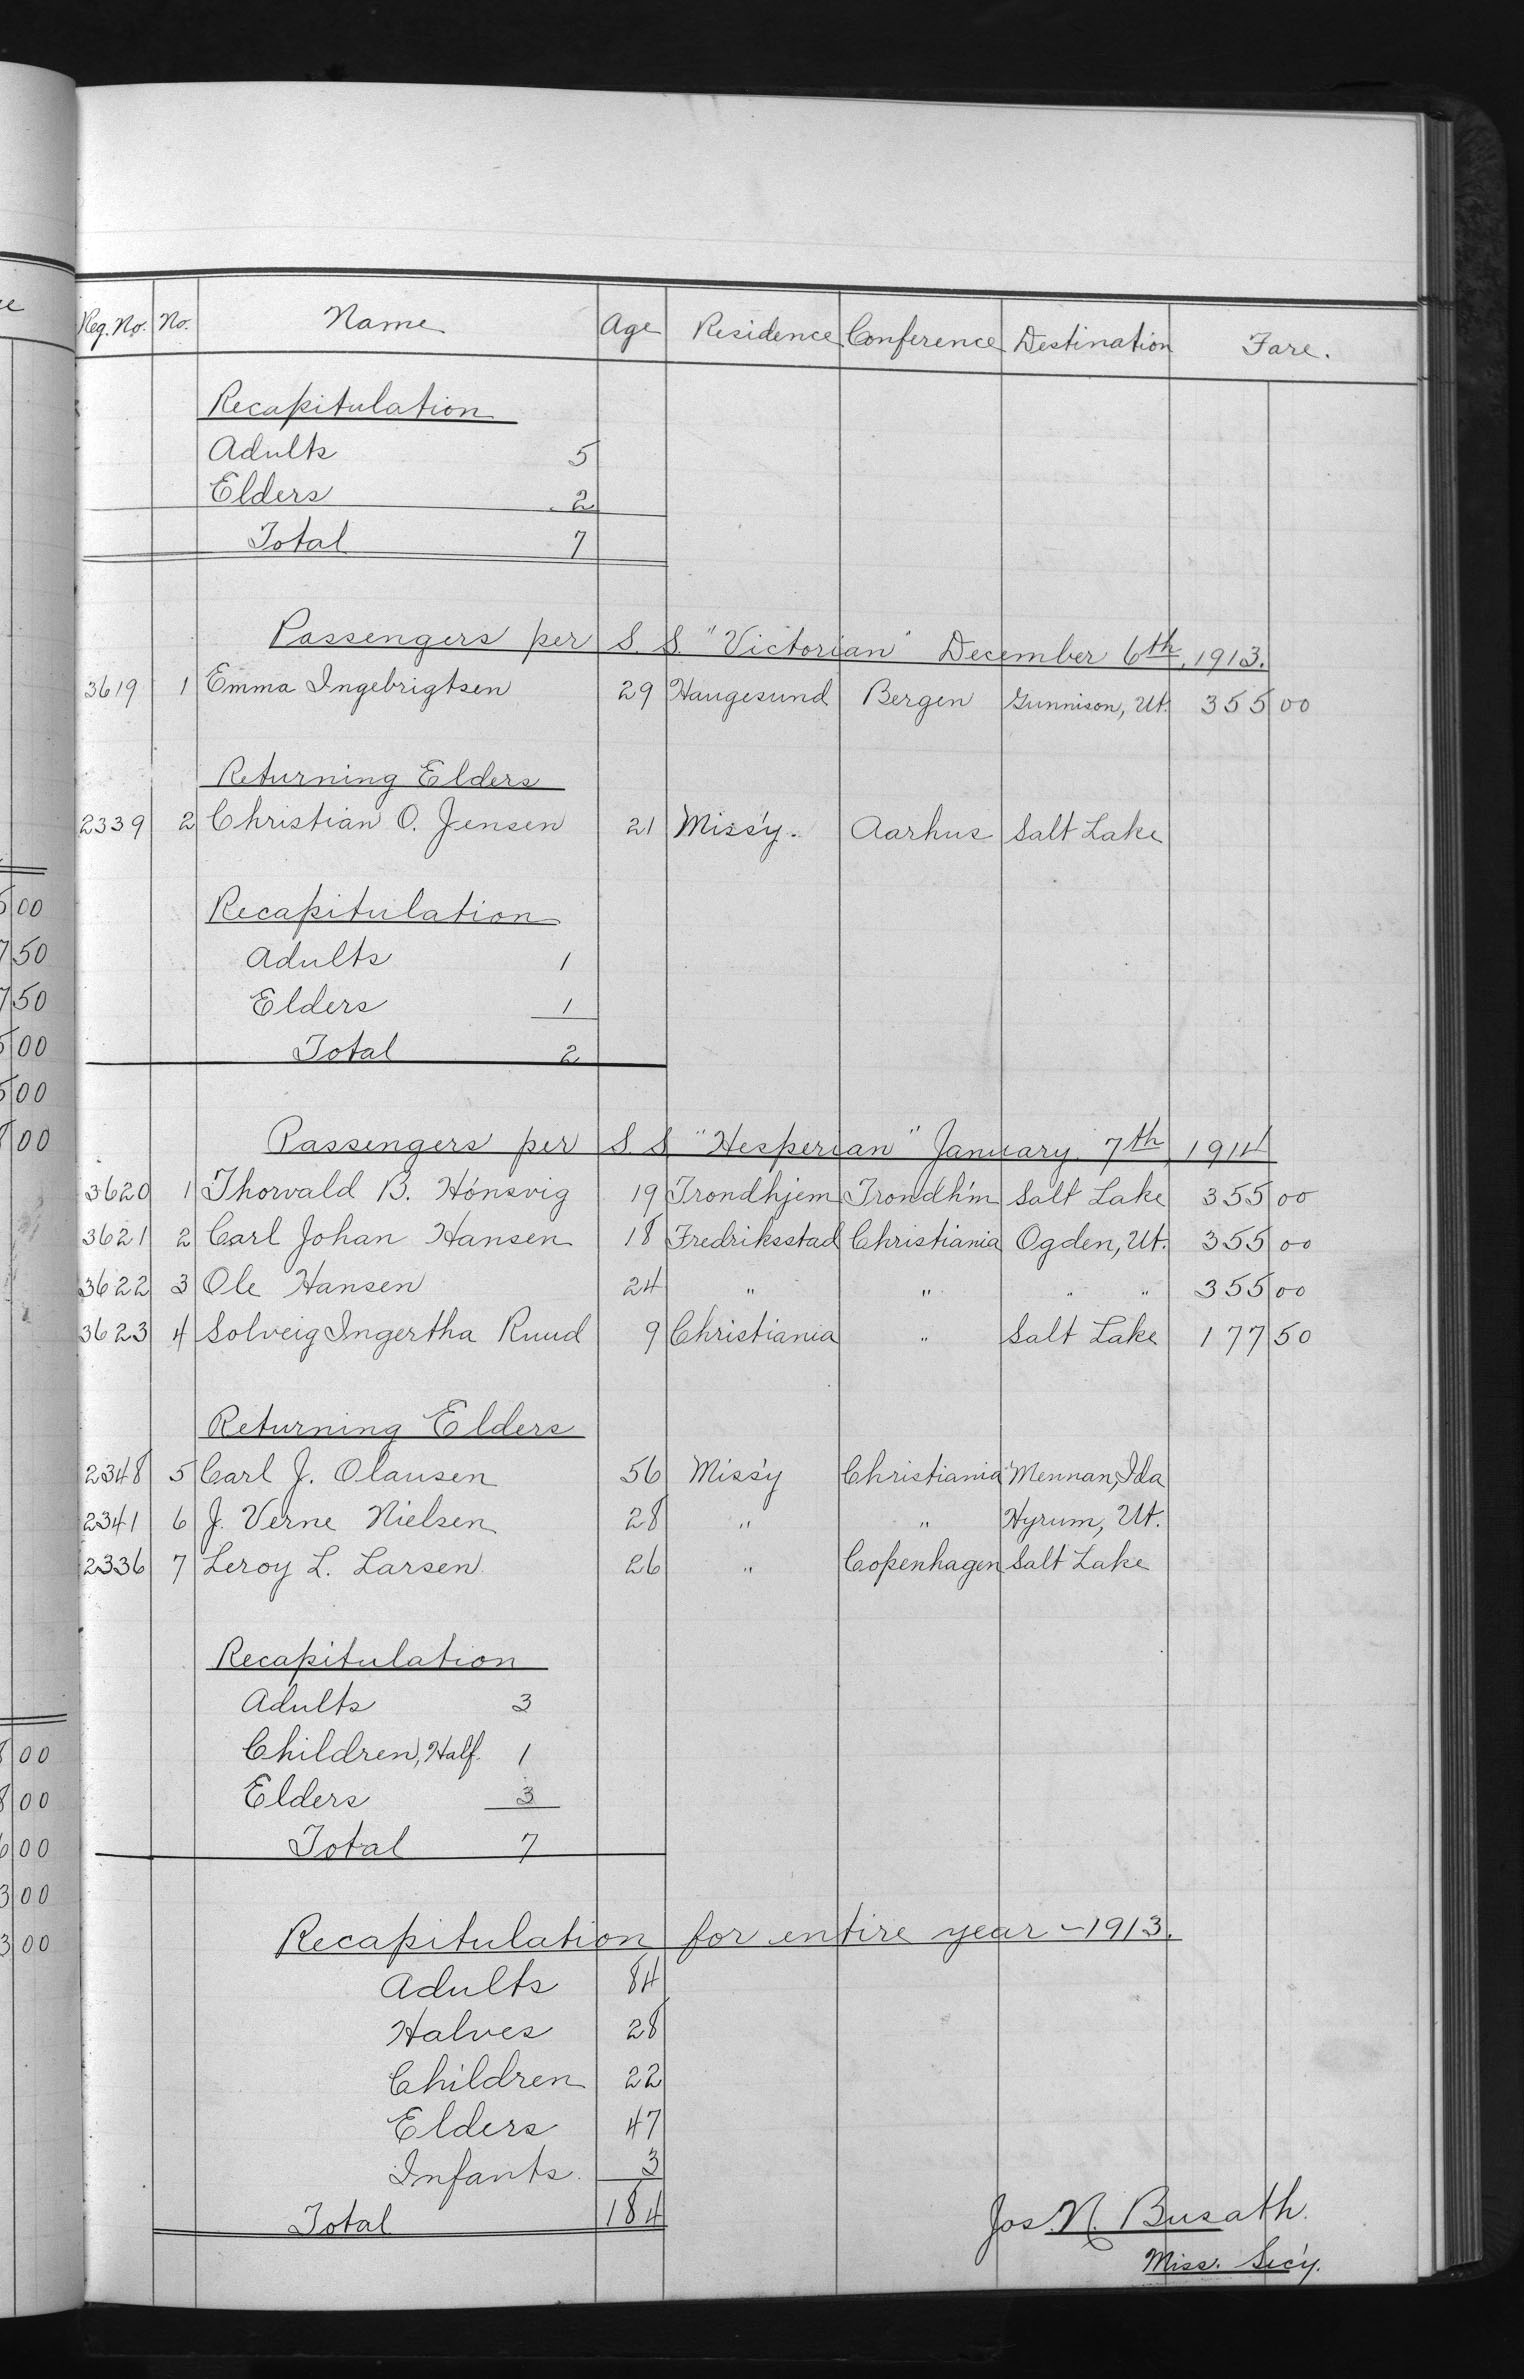 Reg. No. No. Name Age Residence Conference Destination Fare.
Recapitulation
Adults 5
Elders 2
Total 7
Passengers per S. S. "Victorian" December 6th, 1913.
3619 1 Emma Ingebrigtsen 29 Haugesund Bergen Gunnison, Ut. 355 00
Returning Elders
2339 2 Christian O. Jensen 21 Miss'y. Aarhus Salt Lake
Recapitulation
Adults 1
Elders 1
Total 2
Passengers per S. S. "Hesperian" January 7th, 1914
3620 1 Thorvald B. Hönsvig 19 Trondhjem Trondh'm Salt Lake 355 00
3621 2 Carl Johan Hansen 18 Fredriksstad Christiania Ogden, Ut. 355 00
3622 3 Ole Hansen 24 " " " " 355 00
3623 4 Solveig Ingertha Ruud 9 Christiania " Salt Lake 177 50
Returning Elders
2348 5 Carl J. Olausen 56 Miss'y Christiania Mennan, Ida
2341 6 J. Verne Nielsen 28 " " Hyrum, Ut.
2336 7 Leroy L. Larsen 26 " Copenhagen Salt Lake
Recapitulation
Adults 3
Children, Half. 1
Elders 3
Total 7
Recapitulation for entire year – 1913.
Adults 84
Halves 28
Children 22
Elders 47
Infants. 3
Total 184
Jos. N. Busath.
Miss. Sec'y.